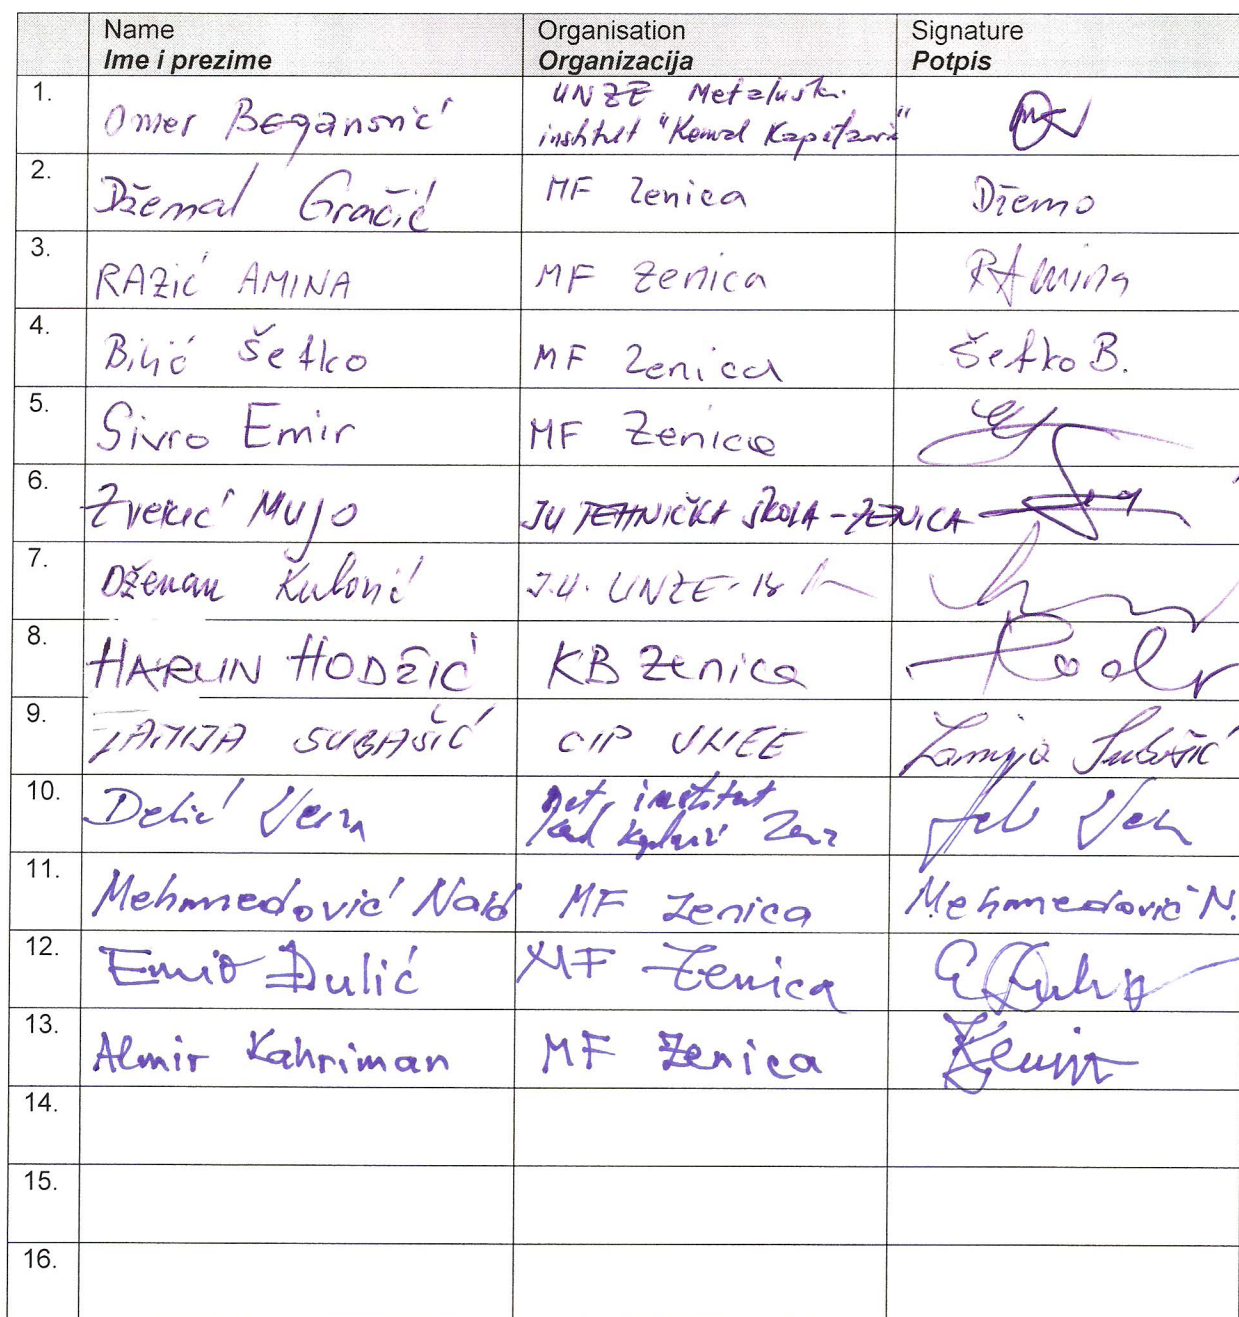 Name Organisation Signature
Ime i prezime Organizacija Potpis
1. Omer Beganović UNZE Metalurški
institut "Kemal Kapetanović"
2. Džemal Gračić MF Zenica Džemo
3. RAZIĆ AMINA MF Zenica RAmina
4. Bilić Šefko MF Zenica Šefko B.
5. Sivro Emir MF Zenica
6. Zvekić Mujo JU TEHNIČKA ŠKOLA-ZENICA
7. Dženan Kulović J.U. UNZE
8. HARUN HODŽIĆ KB Zenica
9. LAMIJA SUBAŠIĆ CIP UNZE Lamija Subašić
10. Delić Vera Met. institut
11. Mehmedović MF Zenica Mehmedović N.
12. Đulić MF Zenica
13. Almir Kahriman MF Zenica
14.
15.
16.